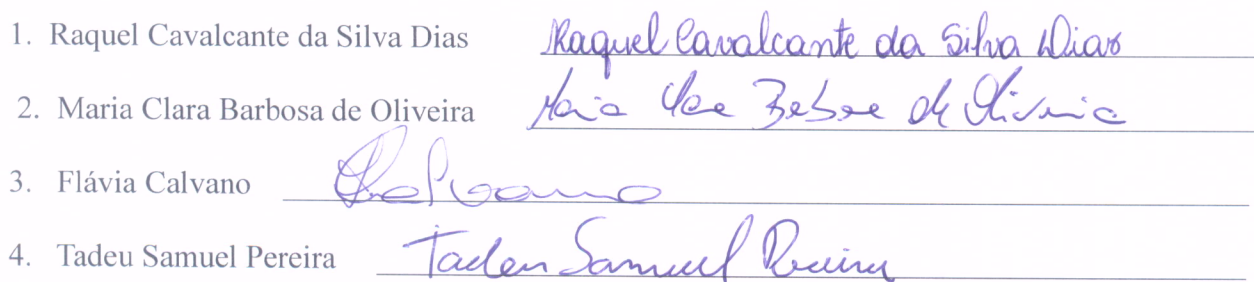 1. Raquel Cavalcante da Silva Dias Raquel Cavalcante da Silva Dias
2. Maria Clara Barbosa de Oliveira Maria Clara Barbosa de Oliveira
3. Flávia Calvano
4. Tadeu Samuel Pereira Tadeu Samuel Pereira